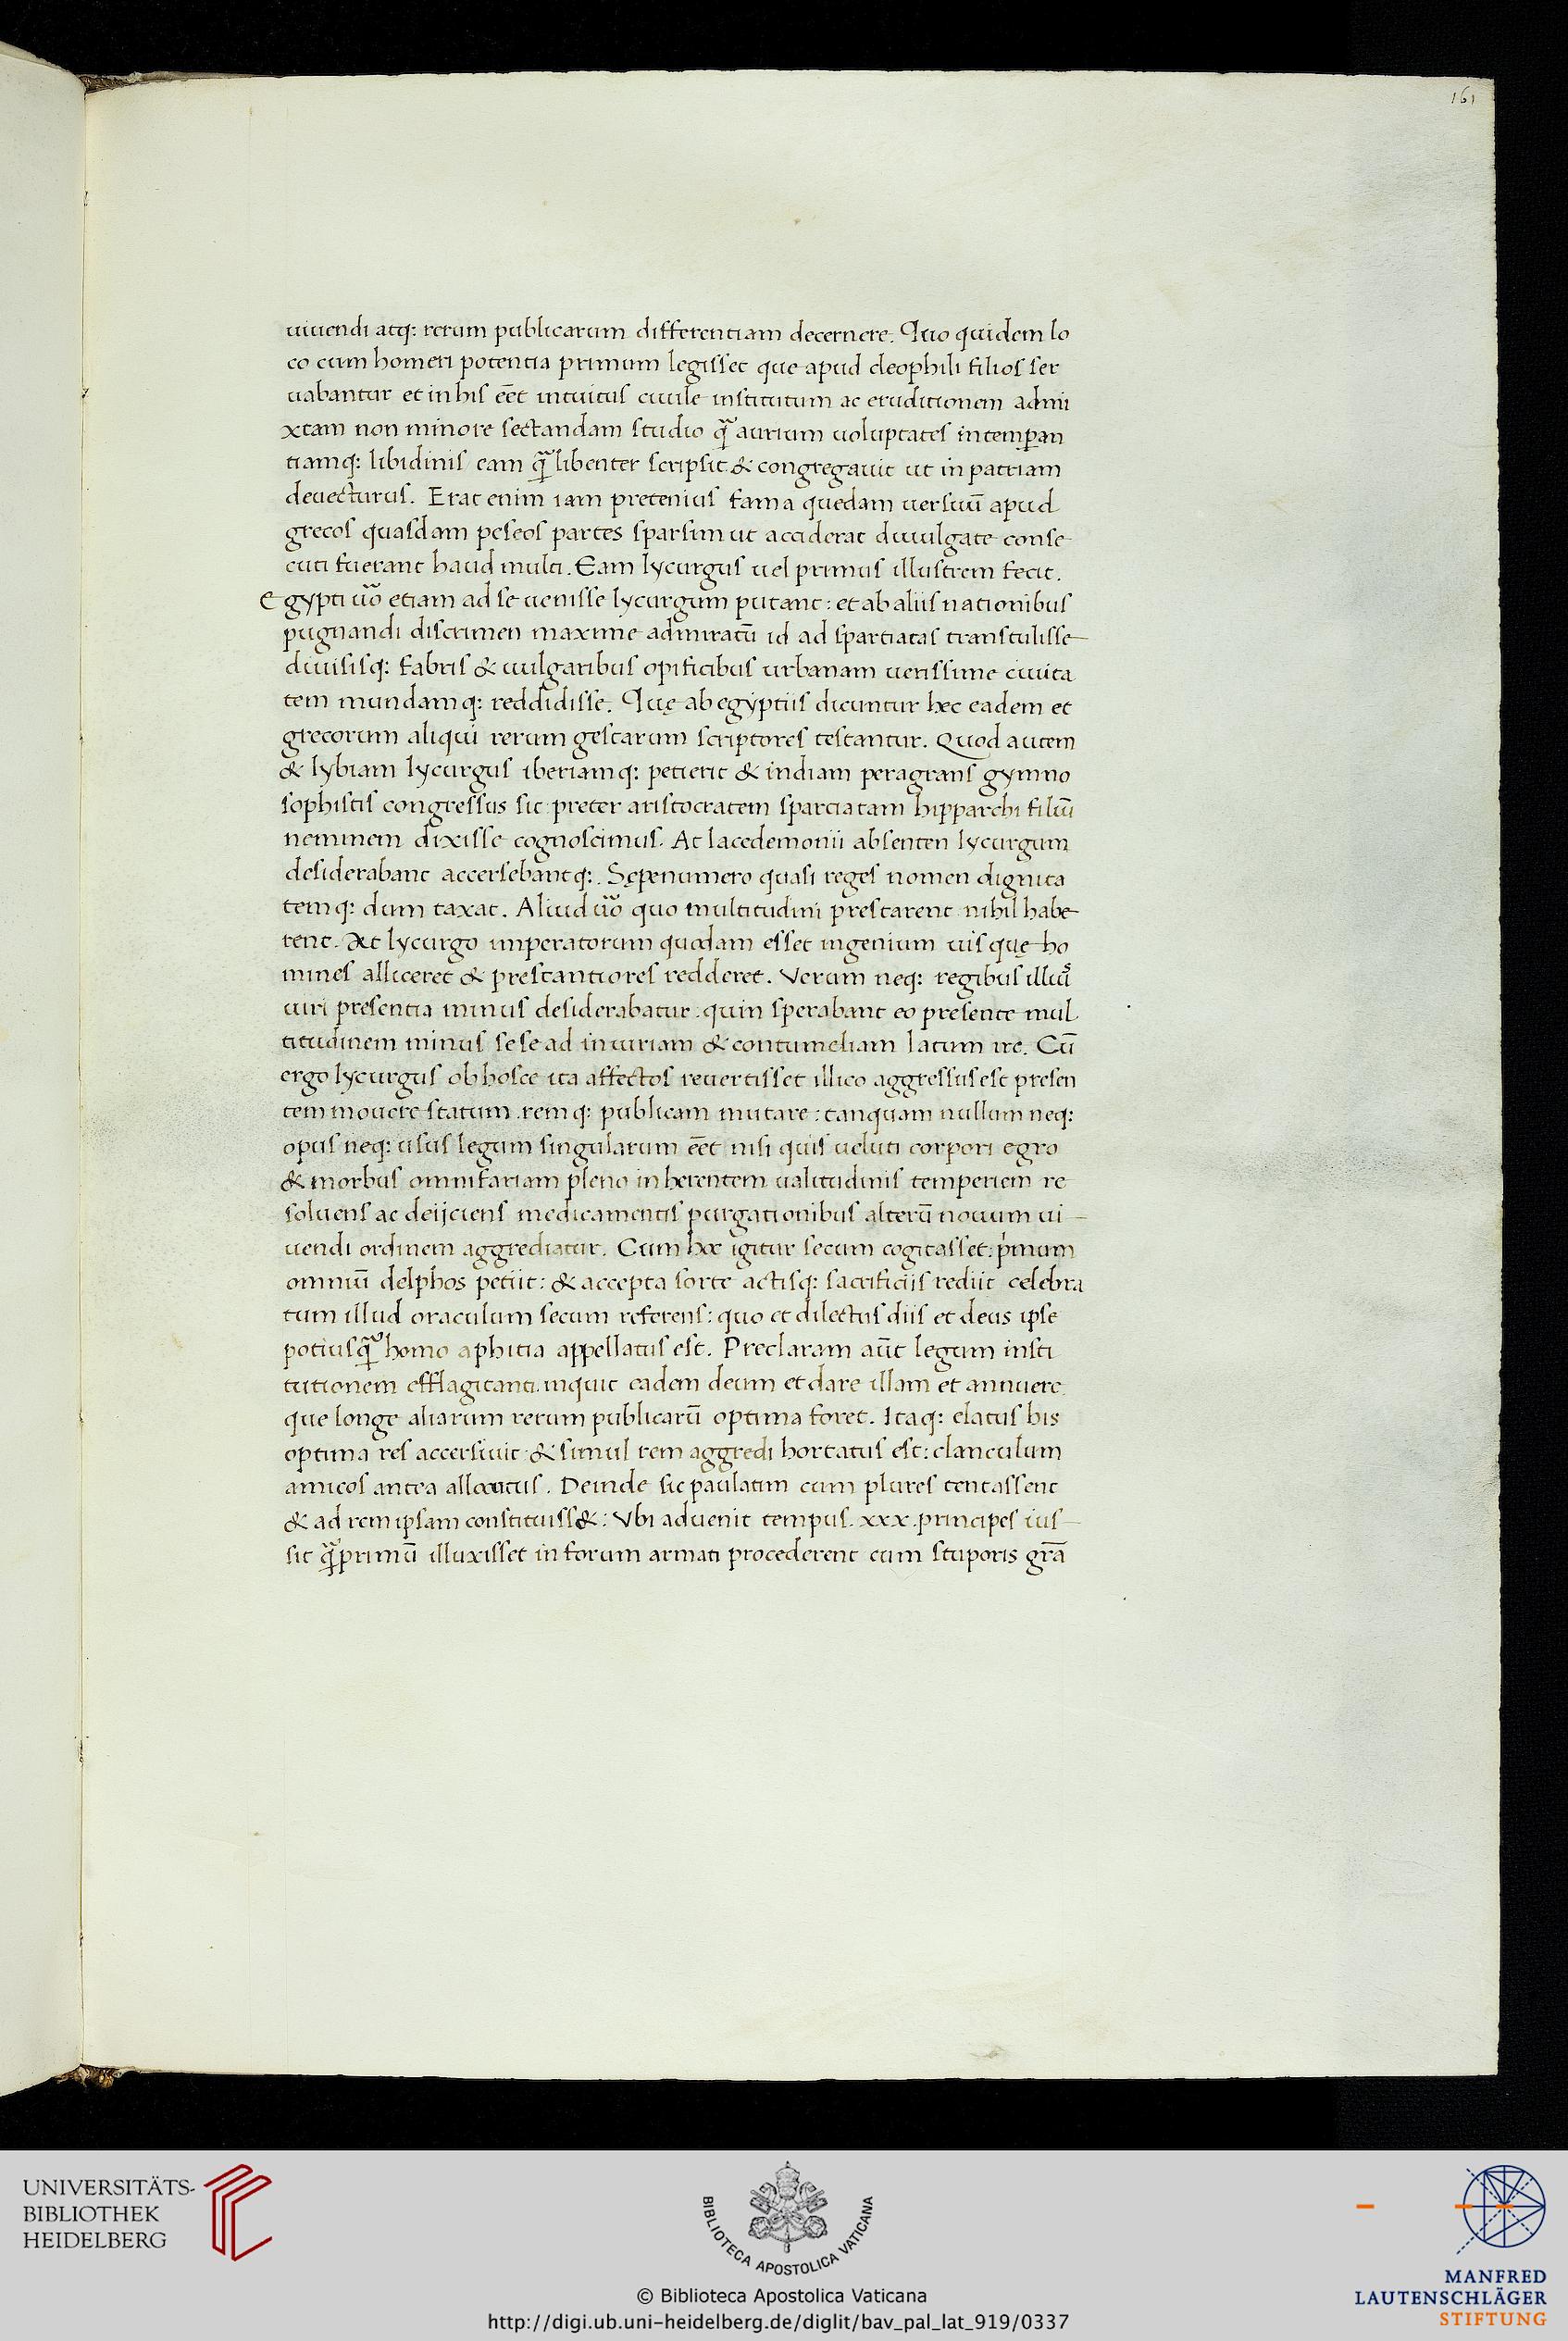 161
uiuendi atq: rerum publicarum differentiam decernere. Quo quidem lo
co cum homeri potentia primum legisset que apud cleophili filios ser
uabantur et in his eēt intuitus ciuile institutum ac eruditionem admi
xtam non minore sectandam studio q̄ aurium uoluptates intemperan
tiamq: libidinis eam q̄ libenter scripsit & congregauit ut in patriam
deuecturus. Erat enim iam pretenius fama quedam uersuū apud
grecos quasdam peseos partes sparsim ut acciderat diuulgate conse
cuti fuerant haud multi. Eam lycurgus uel primus illustrem fecit.
Egypti uō etiam ad se uenisse lycurgum putant: et ab aliis nationibus
pugnandi discrimen maxime admiratū id ad spartiatas transtulisse
diuisisq: fabris & uulgaribus opificibus urbanam uerissime ciuita
tem mundamq: reddidisse. Quę ab egyptiis dicuntur hec eadem et
grecorum aliqui rerum gestarum scriptores testantur. Quod autem
& lybiam lycurgus iberiamq: petierit & indiam peragrans gymno
sophistis congressus sit preter aristocratem spartiatam hipparchi filiū
neminem dixisse cognoscimus. At lacedemonii absenten lycurgum
desiderabant accersebantq:. Sępenumero quasi reges nomen dignita
temq: dum taxat. Aliud uō quo multitudini prestarent nihil habe
rent. At lycurgo imperatorum quodam esset ingenium uis quę ho
mines alliceret & prestantiores redderet. Verum neq: regibus illiuˢ
uiri presentia minus desiderabatur: quin sperabant eo presente mul
titudinem minus sese ad iniuriam & contumeliam latum ire. Cū
ergo lycurgus ob hosce ita affectos reuertisset illico aggressus est presen
tem mouere statum. remq: publicam mutare: tanquam nullum neq:
opus neq: usus legum singularum eēt nisi quis ueluti corpori egro
& morbus omnifariam pleno inherentem ualitudinis temperiem re
soluens ac deijciens medicamentis purgationibus alterū nouum ui
uendi ordinem aggrediatur. Cum hec igitur secum cogitasset: pímum
omniū delphos petiit: & accepta sorte actisq: sacrificiis rediit celebra
tum illud oraculum secum referens: quo et dilectus diis et deus ipse
potiusq̄ homo aphitia appellatus est. Preclaram aūt legum insti
tutionem efflagitanti. inquit eadem deum et dare illam et annuere
que longe aliarum rerum publicarū optima foret. Itaq: elatus his
optima res accersiuit & simul rem aggredi hortatus est: clanculum
amicos antea allocutus. Deinde sic paulatim cum plures tentassent
& ad rem ipsam constituiss&: Vbi aduenit tempus. xxx. principes ius
sit q̄primū illuxisset in forum armati procederent cum stuporis grā
UNIVERSITÄTS-
BIBLIOTHEK
HEIDELBERG
BIBLIOTECA APOSTOLICA VATICANA
© Biblioteca Apostolica Vaticana
http://digi.ub.uni-heidelberg.de/diglit/bav_pal_lat_919/0337
MANFRED
LAUTENSCHLÄGER
STIFTUNG